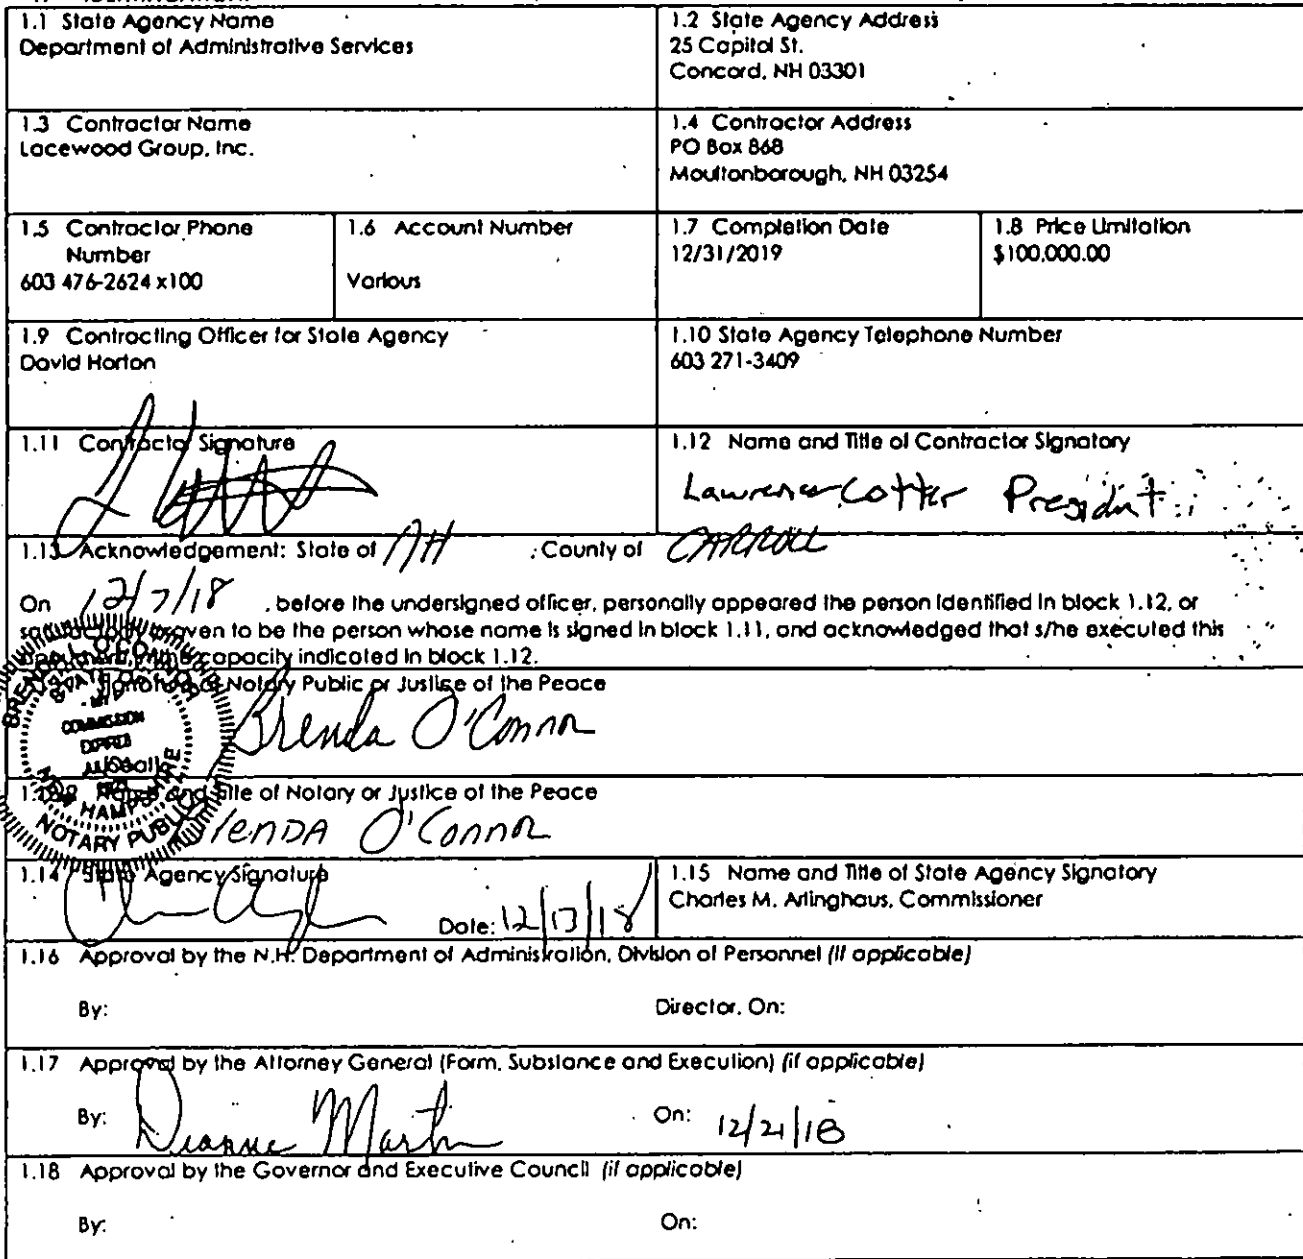 1.1 State Agency Name
Department of Administrative Services
1.2 State Agency Address
25 Capitol St.
Concord, NH 03301
1.3 Contractor Name
Lacewood Group, Inc.
1.4 Contractor Address
PO Box 868
Moultonborough, NH 03254
1.5 Contractor Phone
Number
603 476-2624 x100
1.6 Account Number
Various
1.7 Completion Date
12/31/2019
1.8 Price Limitation
$100,000.00
1.9 Contracting Officer for State Agency
David Horton
1.10 State Agency Telephone Number
603 271-3409
1.11 Contractor Signature
1.12 Name and Title of Contractor Signatory
Lawrence Cotter President
1.13 Acknowledgement: State of NH , County of CARROLL
On 12/7/18 , before the undersigned officer, personally appeared the person identified in block 1.12, or
proven to be the person whose name is signed in block 1.11, and acknowledged that s/he executed this
capacity indicated in block 1.12.
Signature of Notary Public or Justice of the Peace
Brenda O'Connor
BRENDA L. O'CONNOR
STATE OF
MY
COMMISSION
EXPIRES
NEW HAMPSHIRE
NOTARY PUBLIC
Name and Title of Notary or Justice of the Peace
Brenda O'Connor
1.14 State Agency Signature
Date: 12/13/18
1.15 Name and Title of State Agency Signatory
Charles M. Arlinghaus, Commissioner
1.16 Approval by the N.H. Department of Administration, Division of Personnel (if applicable)
By: Director, On:
1.17 Approval by the Attorney General (Form, Substance and Execution) (if applicable)
By: Dianne Martin On: 12/21/18
1.18 Approval by the Governor and Executive Council (if applicable)
By: On: